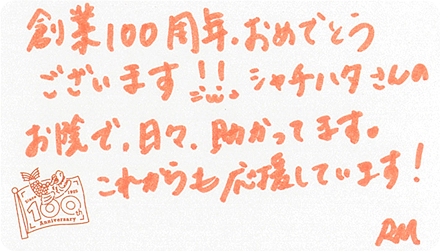 創業100周年.おめでとう
ございます!! シャチハタさんの
お陰で,日々,助かってます。
これからも応援しています!
RM
since 1925
100th
Anniversary